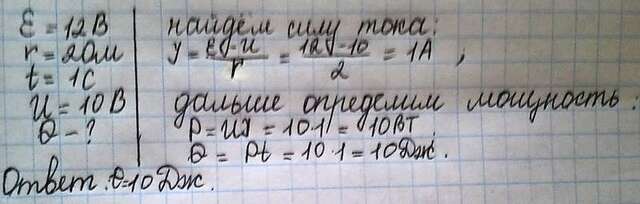 ℰ = 12В
r = 2Ом
t = 1С
U = 10В
Q - ?
найдём силу тока:
У = (ℰ - U)/r = (12 - 10)/2 = 1А ;
дальше определим мощность.
P = UУ = 10·1 = 10Вт
Q = Pt = 10·1 = 10Дж.
Ответ: Q=10Дж.